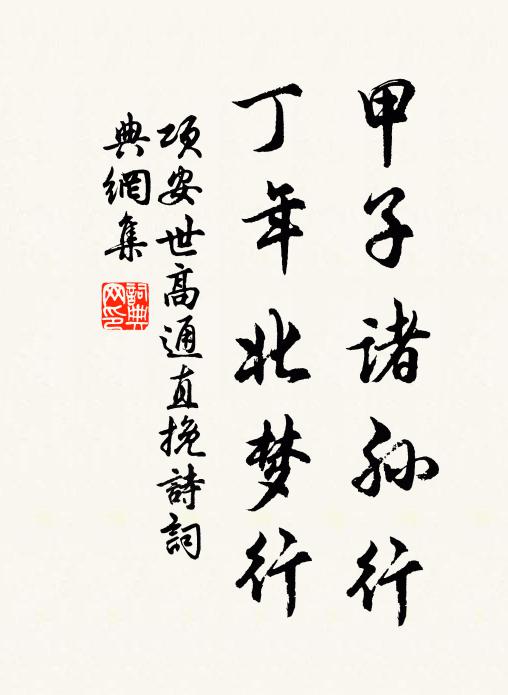 甲子诸孙行
丁年北梦行
项安世高通直挽詩詞
典網集
詞典网印